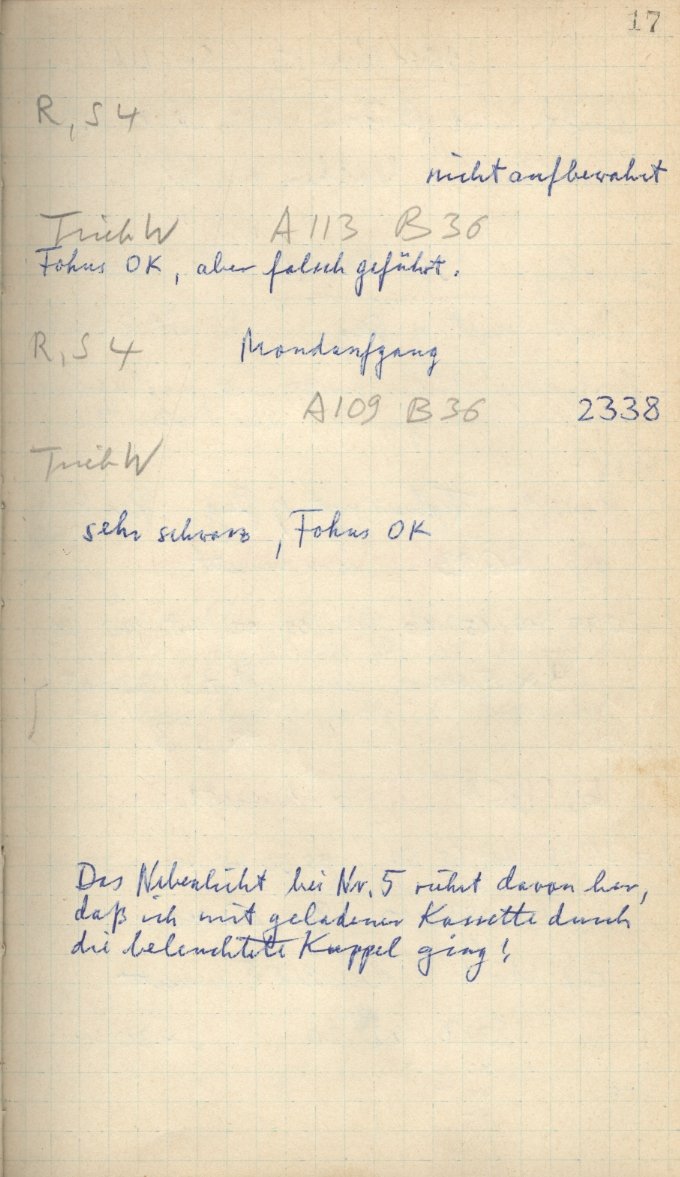 17
R, S 4
nicht aufbewahrt
TriebW A113 B36
Fokus OK, aber falsch geführt.
R, S 4 Mondaufgang
A109 B36 2338
TriebW
sehr schwarz, Fokus OK
Das Nebenlicht bei Nr. 5 rührt davon her,
daß ich mit geladener Kassette durch
die beleuchtete Kuppel ging!